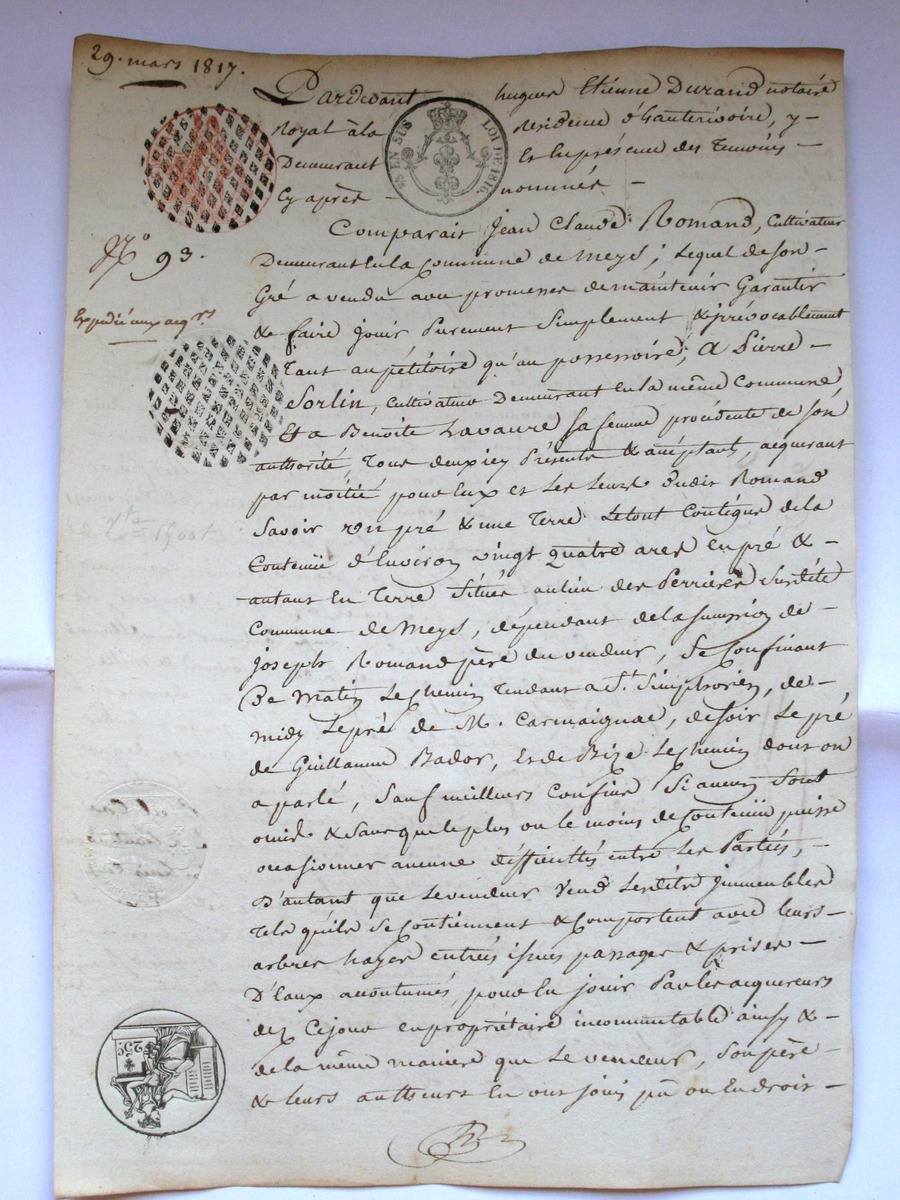 29. mars 1817.
Pardevant hugues Etienne Durand notaire
Royal à la Residence d'hauterivoire, y
Demeurant Et En présence des Temoins
Cy après nommés
EN SUS LOI DE 1816.
N° 93.
Expedié aux acq.rs
Comparait Jean Claude Romand, Cultivateur
Demeurant En la Commune de Meys; Lequel de son
Gré a vendu avec promesse de maintenir Garantir
& faire jouir Purement Simplement & irrévocablement
Tant au pétitoire qu'au possessoire, A Pierre
Sorlin, cultivateur Demeurant En la même Commune,
Et a Benoite Lavaure sa femme procédente de son
authorité, Tous deux icy Présents & acceptants, acquerant
par moitié pour Eux et Les Leurs dudit Romand
Savoir un pré & une Terre Le tout Contigus de la
Contenüe d'Environ vingt quatre ares en pré &
autant En Terre Situés au lieu des Perrières Susdite
Commune de Meys, dépendant de la succession de
joseph Romand père du vendeur, Se Confinant
De Matin Le chemin Tendant a St. Simphorien, de
midy Le pré de M. Carmaignac, de soir Le pré
de Guillaume Bador, Et de Bize Le chemin dont on
a parlé, Sauf meilleurs Confins Si aucuns Sont
omis & Sans que le plus ou le moins de Contenüe puisse
occasionner aucune difficultés entre Les Parties,
D'autant que Le vendeur Vend Lesdits Immeubles
Tels qu'ils Se Contiennent & Comportent avec Leurs
arbres hayes entrées issues passages & prises
D'Eaux accoutumés, pour En jouir Par Les acquereurs
dez Cejour en propriétaire incommutable ainsy &
de la même maniere que Le vendeur, Son père
& Leurs autheurs En ont joui pu ou En droit
25c.